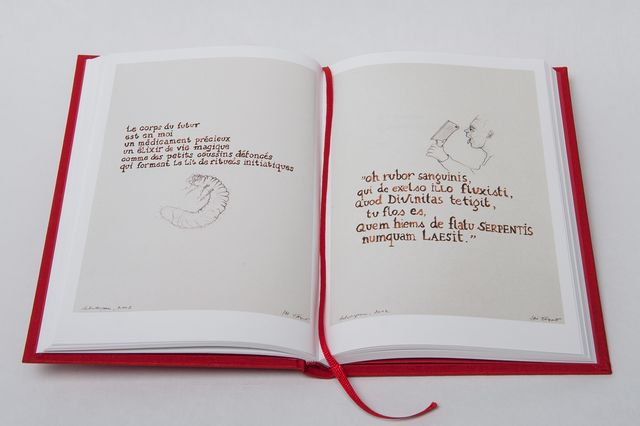 Le corps du futur
est en moi
un médicament précieux
un élixir de vie magique
comme des petits coussins défoncés
qui forment le lit de rituels initiatiques
2002
"oh rubor sanguinis,
qui de exelso illo fluxisti,
quod Divinitas tetigit,
tu flos es,
Quem hiems de flatu SERPENTIS
numquam LAESit."